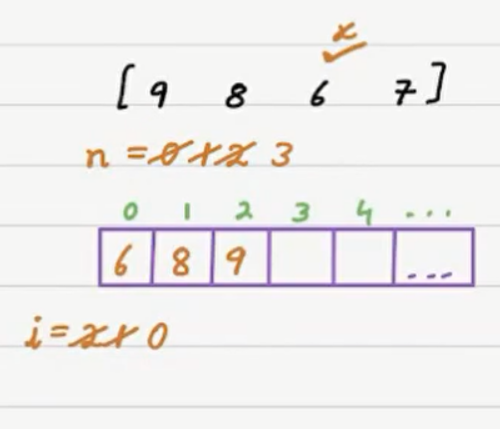 x
[ 9 8 6 7 ]
n = 0 1 2 3
0 1 2 3 4 ...
6 8 9 ...
i = 2 1 0